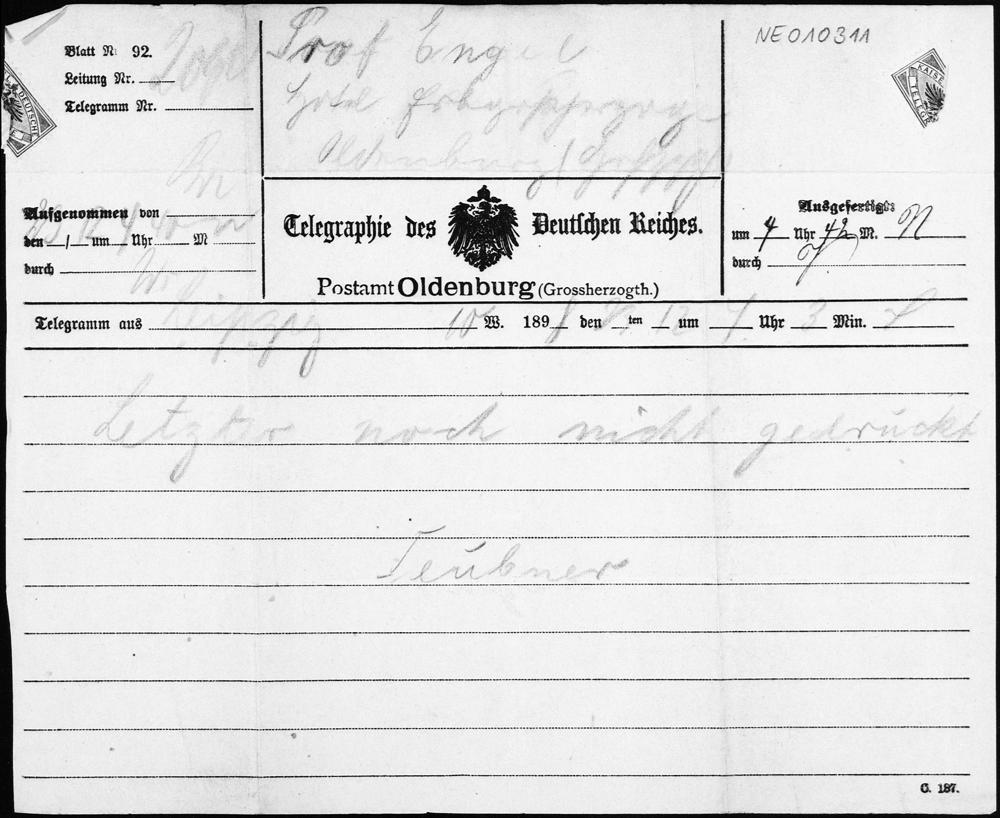 Blatt Nr. 92.
Leitung Nr.
Telegramm Nr.
Prof Engel
Hotel Erbgrossherzog
Oldenburg
NE010311
DEUTSCHE
KAISE
TELEGR
Aufgenommen von
den / um Uhr M
durch
Telegraphie des Deutschen Reiches.
Postamt Oldenburg (Grossherzogth.)
Ausgefertigt:
um 4 Uhr 42 M. N
durch
Telegramm aus Leipzig 10 W. 189 8 den ten 12 um 4 Uhr 3 Min.
Letzter noch nicht gedruckt
Teubner
C. 187.